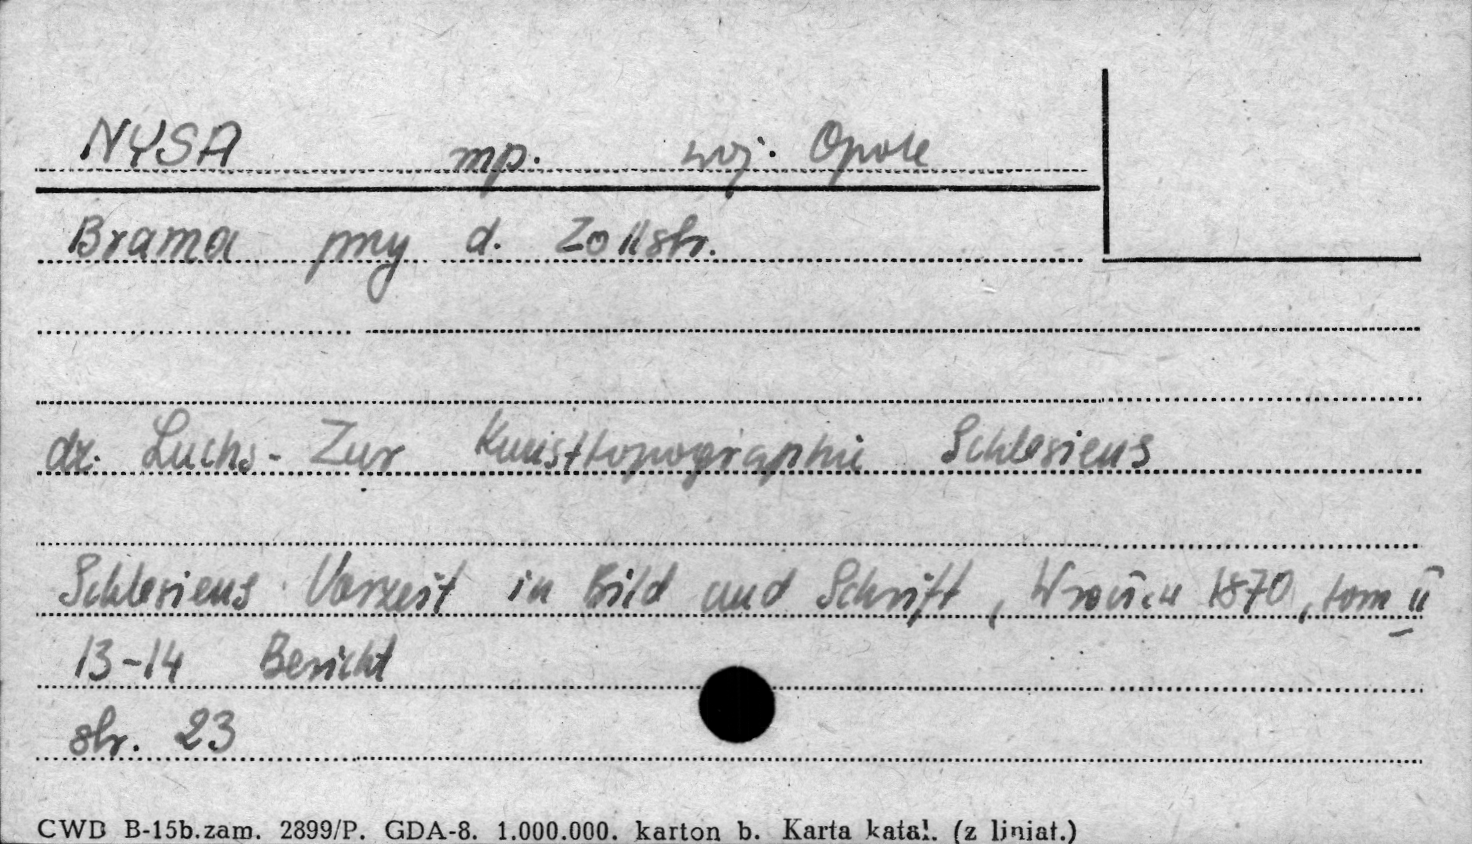 NYSA mp. woj. Opole
Brama przy d. Zollstr.
dr. Luchs - Zur Kunsttopographie Schlesiens
Schlesiens Vorzeit in Bild und Schrift, Wrocław 1870, tom II
13-14 Bericht
str. 23
CWD B-15b.zam. 2899/P. GDA-8. 1.000.000. karton b. Karta katal. (z liniat.)